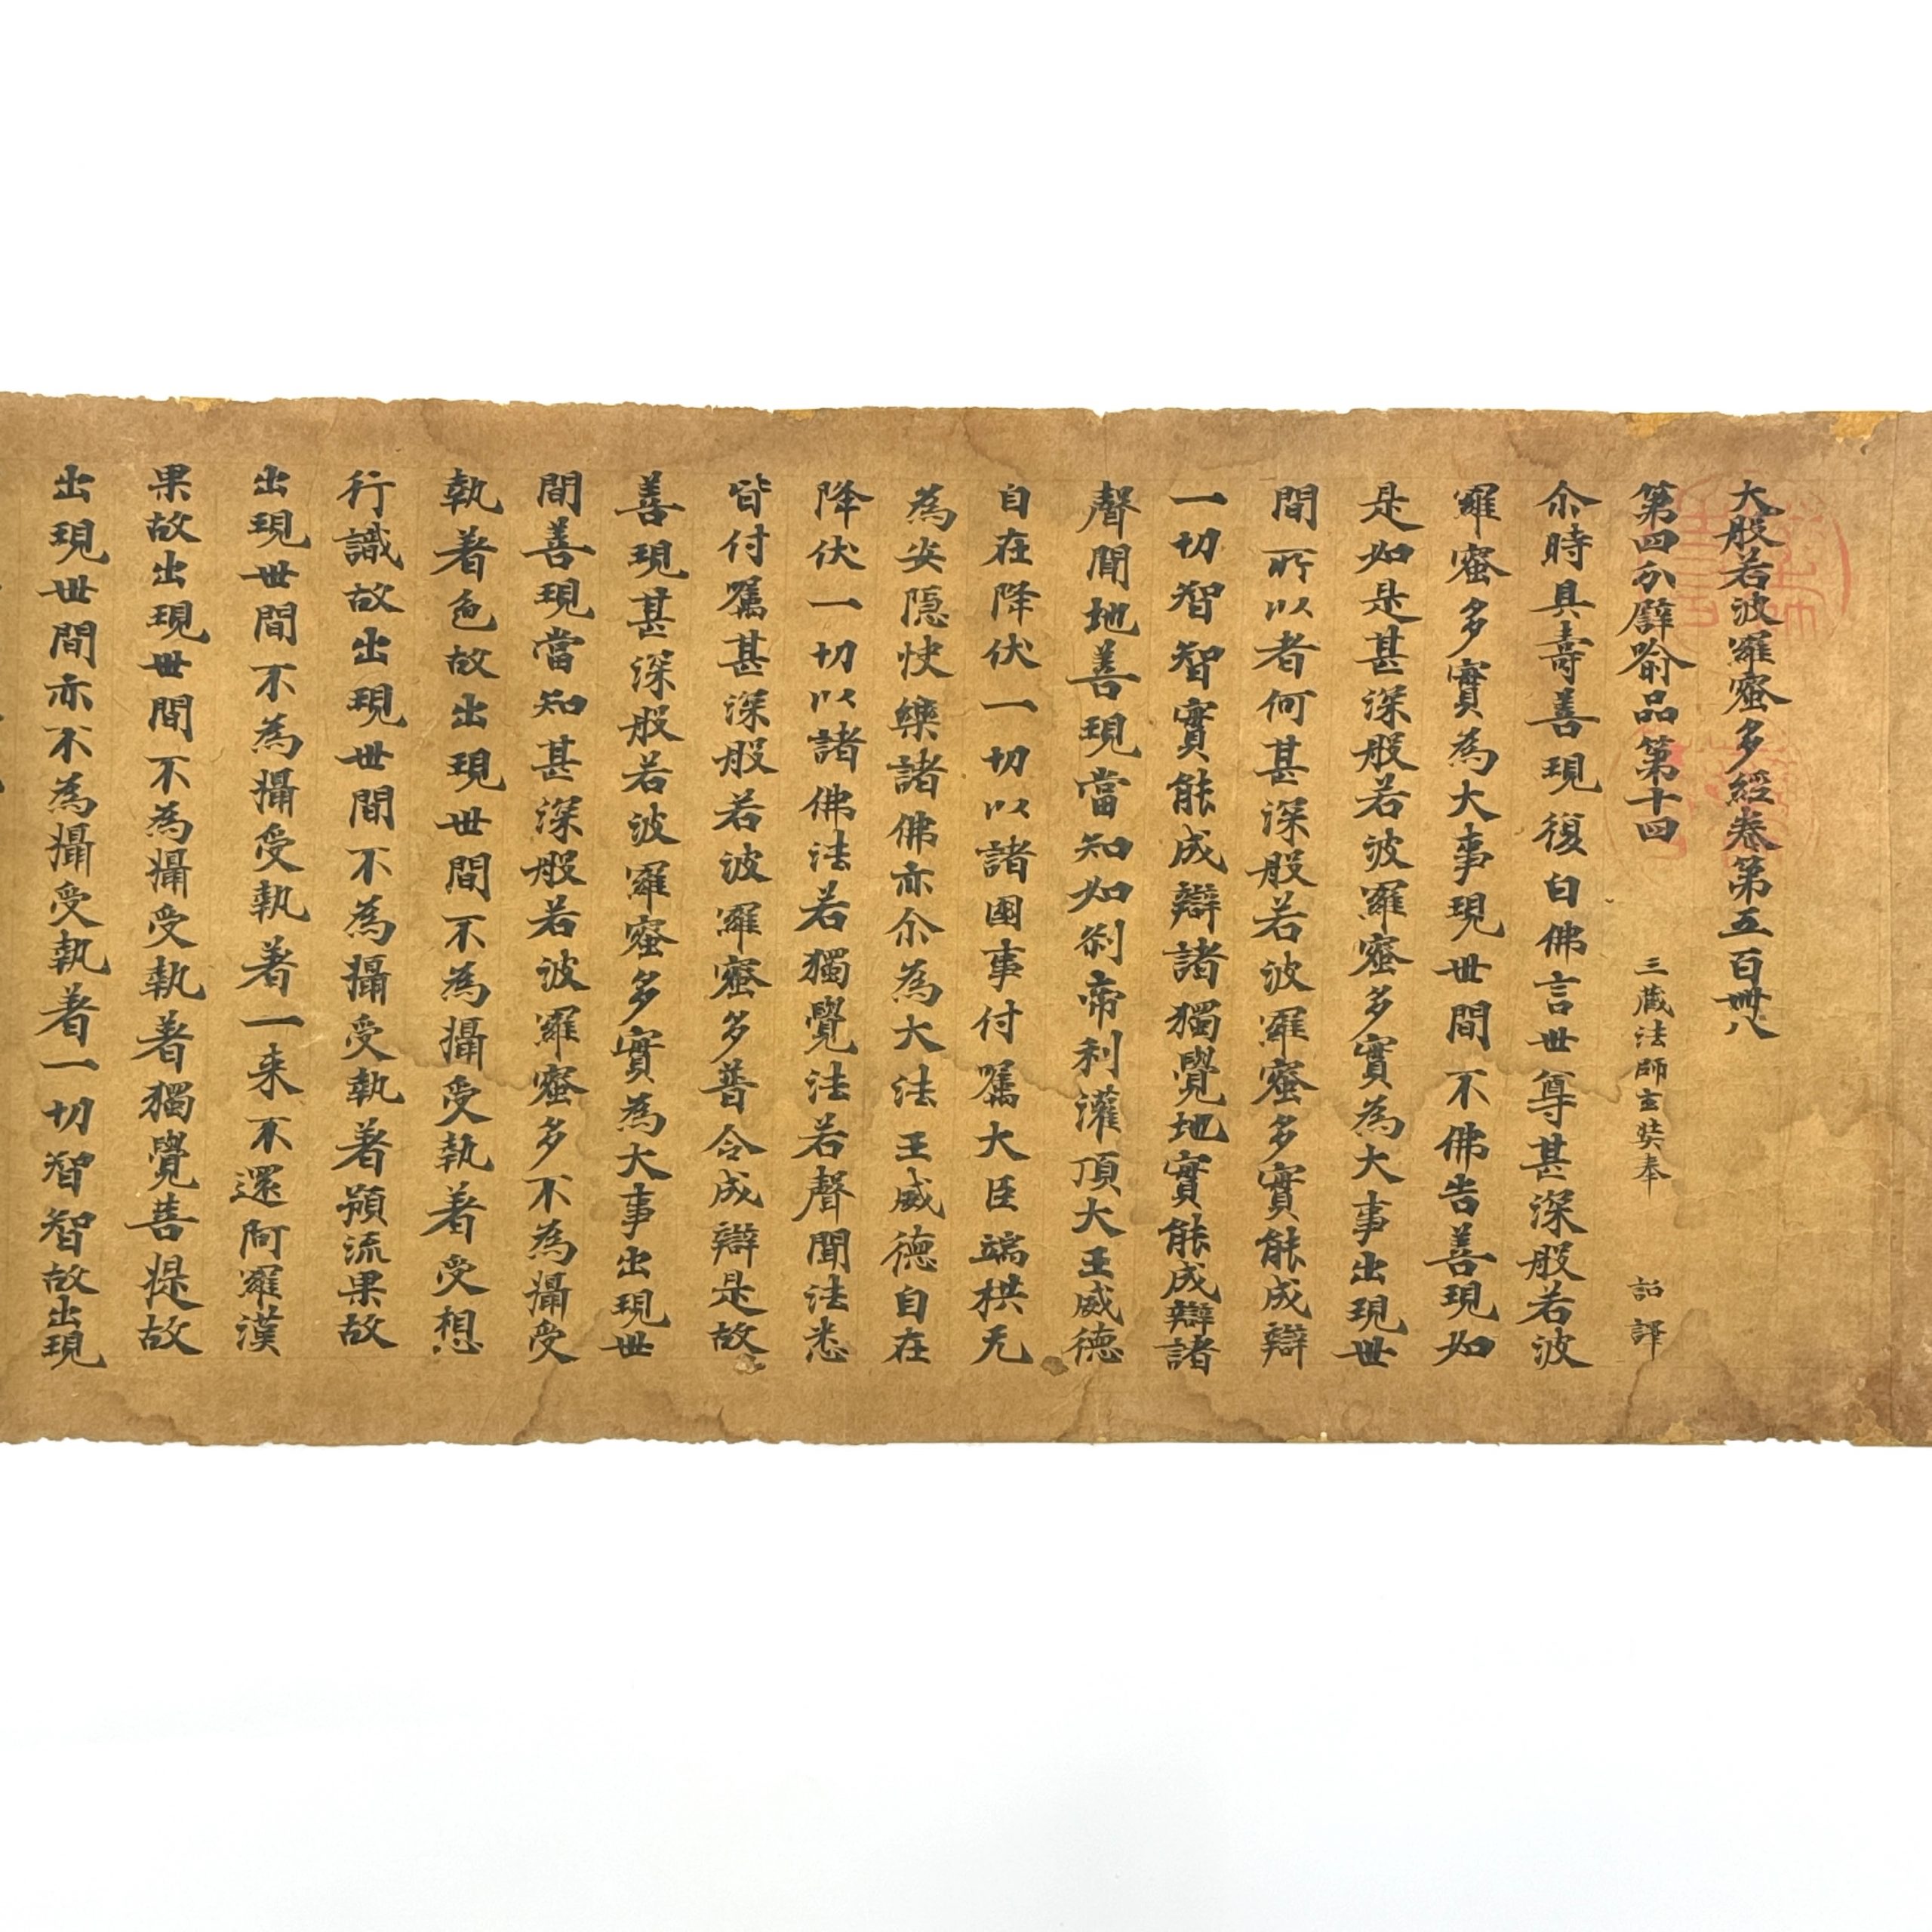 大般若波羅蜜多經卷第五百卌八
第四分譬喻品第十四 三藏法師玄奘奉 詔譯
尒時具壽善現復白佛言世尊甚深般若波
羅蜜多實為大事現世間不佛告善現如
是如是甚深般若波羅蜜多實為大事出現世
間所以者何甚深般若波羅蜜多實能成辯
一切智智實能成辯諸獨覺地實能成辯諸
聲聞地善現當知如剎帝利灌頂大王威德
自在降伏一切以諸國事付囑大臣端拱无
為安隱快樂諸佛亦尒為大法王威德自在
降伏一切以諸佛法若獨覺法若聲聞法悉
皆付囑甚深般若波羅蜜多普令成辯是故
善現甚深般若波羅蜜多實為大事出現世
間善現當知甚深般若波羅蜜多不為攝受
執著色故出現世間不為攝受執著受想
行識故出現世間不為攝受執著預流果故
出現世間不為攝受執著一来不還阿羅漢
果故出現世間不為攝受執著獨覺菩提故
出現世間亦不為攝受執著一切智智故出現